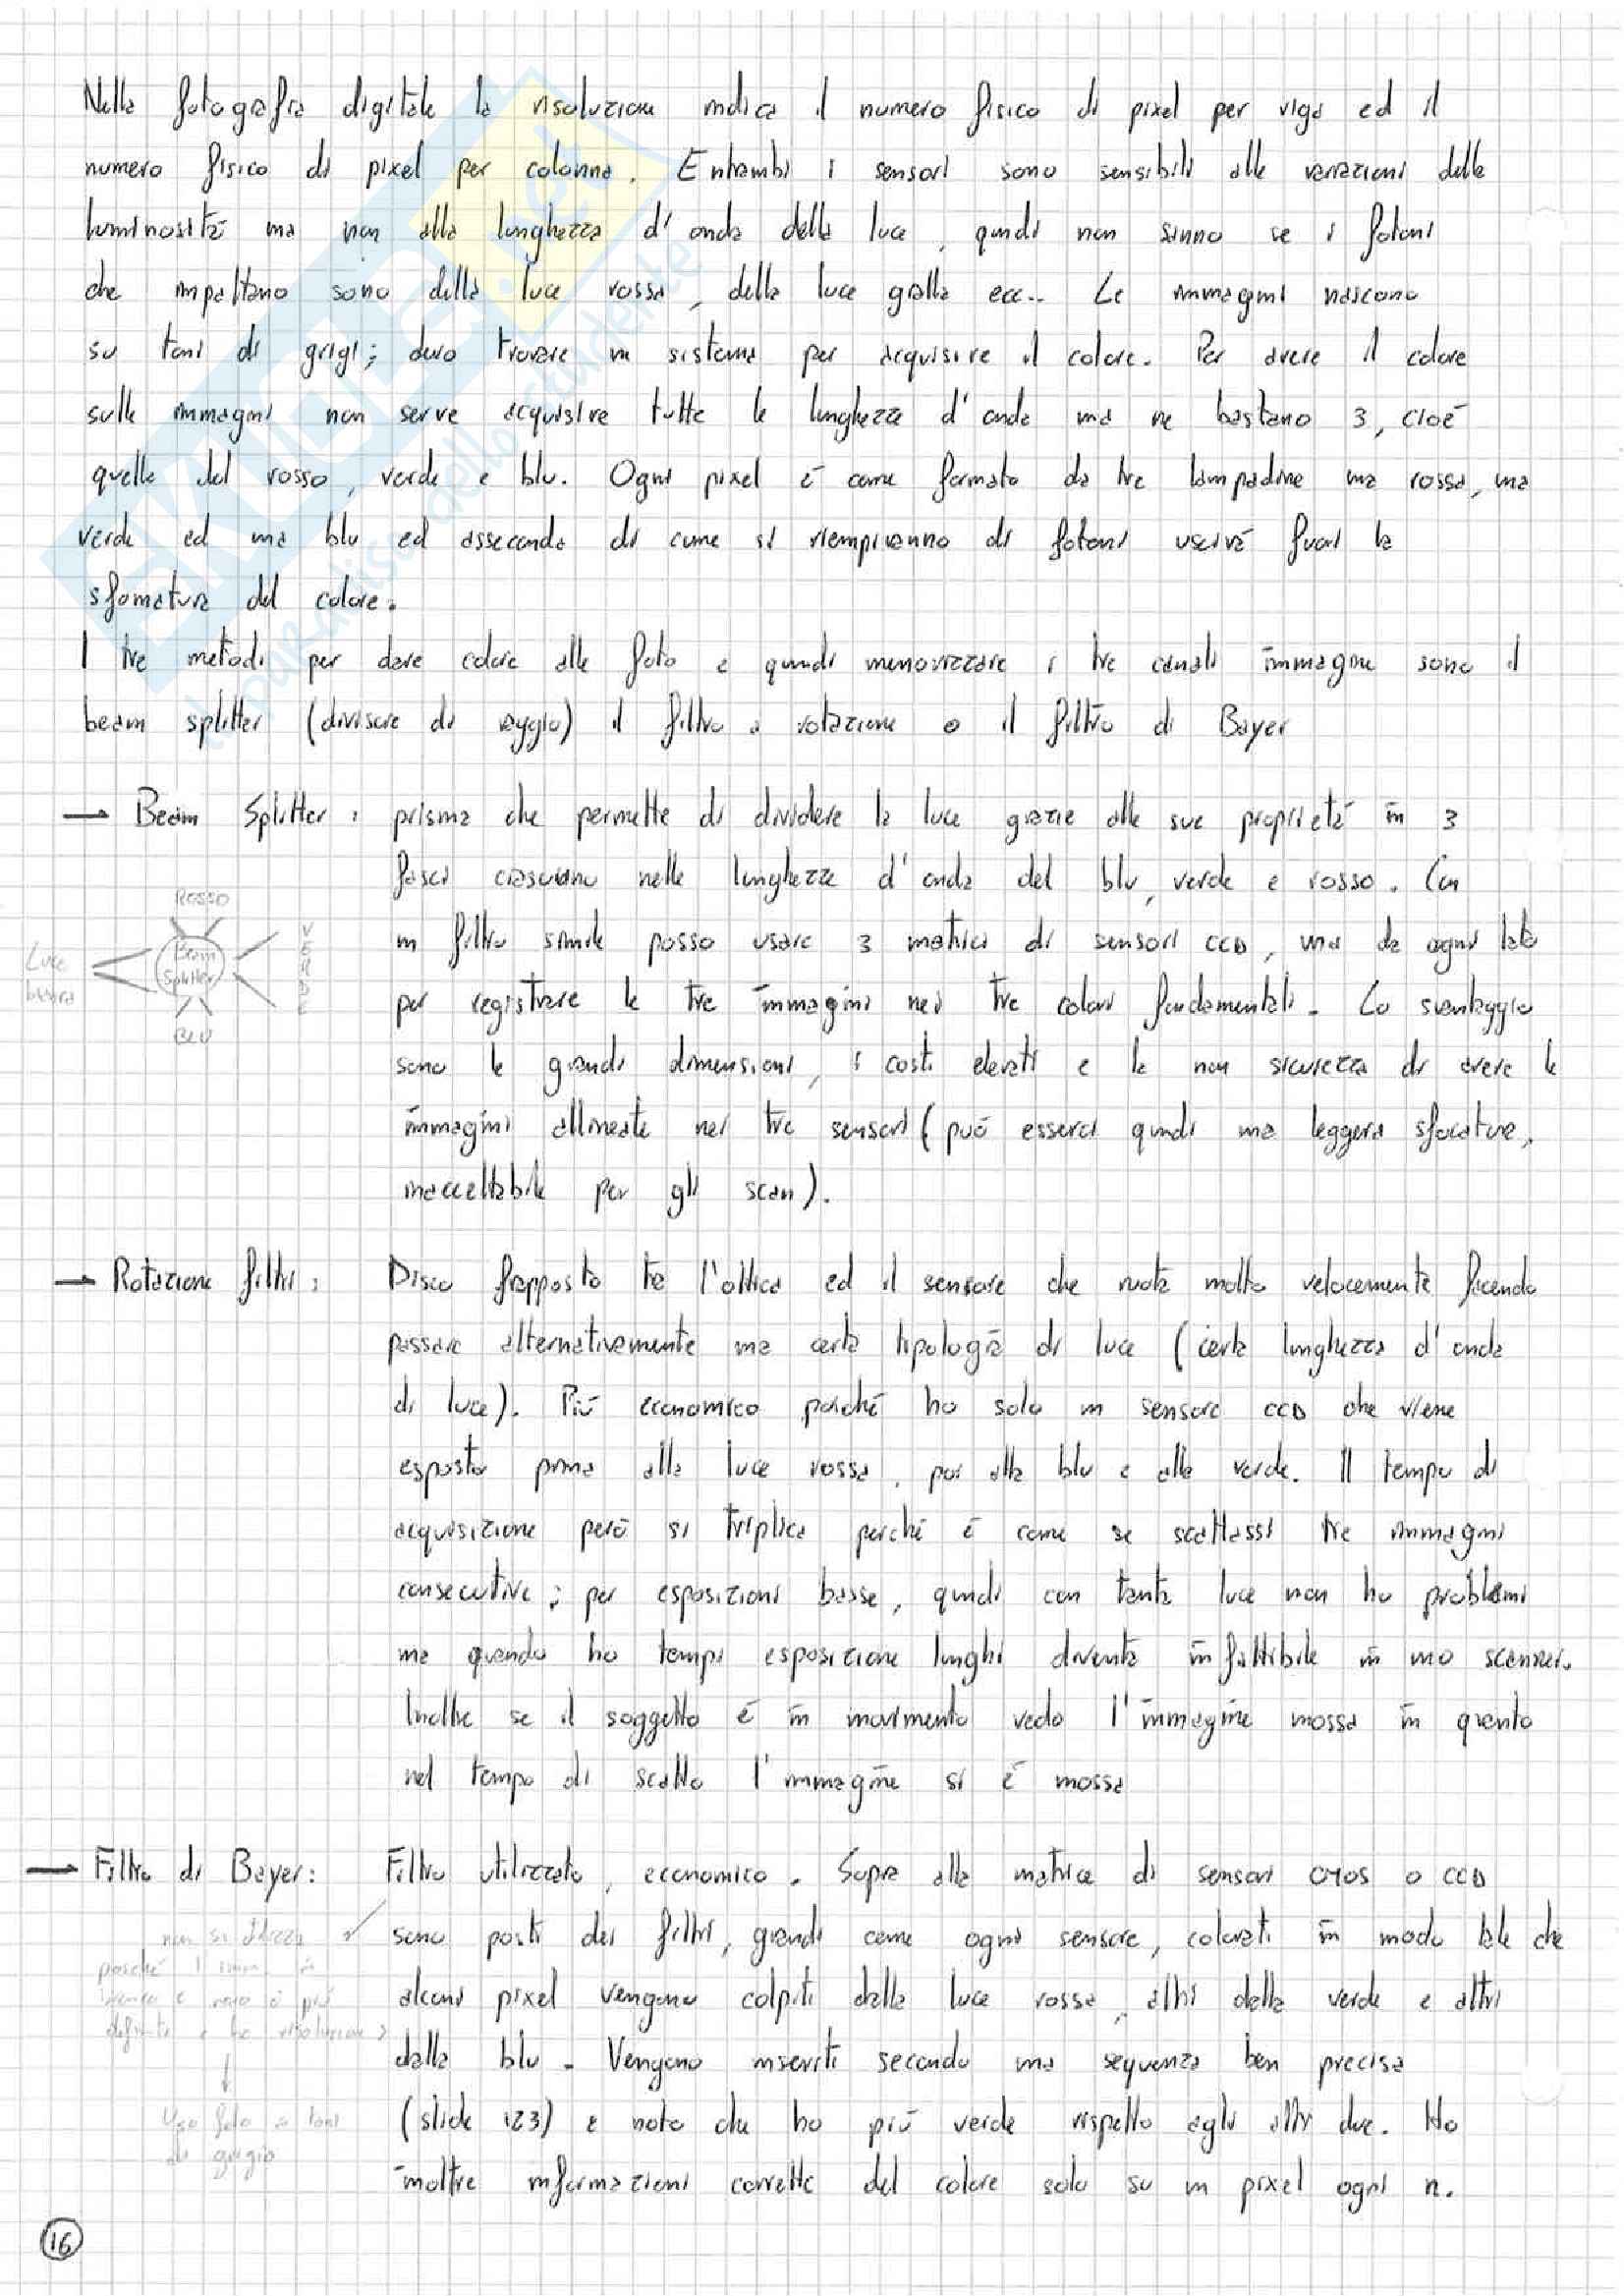 Nella fotografia digitale la risoluzione indica il numero fisico di pixel per riga ed il
numero fisico di pixel per colonna. Entrambi i sensori sono sensibili alle variazioni della
luminosità ma non alla lunghezza d'onda della luce, quindi non sanno se i fotoni
che impattano sono della luce rossa, della luce gialla ecc.. Le immagini nascono
su toni di grigi; devo trovare un sistema per acquisire il colore. Per avere il colore
sulle immagini non serve acquisire tutte le lunghezze d'onda ma ne bastano 3, cioè
quelle del rosso, verde e blu. Ogni pixel è come formato da tre lampadine una rossa, una
verde ed una blu ed asseconda di come si riempiranno di fotoni uscirà fuori la
sfomatura del colore.
I tre metodi per dare colore alle foto e quindi memorizzare i tre canali immagine sono il
beam splitter (divisore di raggio) il filtro a rotazione o il filtro di Bayer
→ Beam Splitter: prisma che permette di dividere la luce grazie alle sue proprietà in 3
fasci ciascuno nelle lunghezze d'onda del blu, verde e rosso. Con
un filtro simile posso usare 3 matrici di sensori CCD, una da ogni lato
per registrare le tre immagini nei tre colori fondamentali. Lo svantaggio
sono le grandi dimensioni, i costi elevati e la non sicurezza di avere le
immagini allineate nei tre sensori (può esserci quindi una leggera sfocatura,
inaccettabile per gli scan).
ROSSO
Luce
bianca
Beam
Splitter
VERDE
BLU
→ Rotazione filtri: Disco frapposto tra l'ottica ed il sensore che ruota molto velocemente facendo
passare alternativamente una certa tipologia di luce (certa lunghezza d'onda
di luce). Più economico poiché ho solo un sensore CCD che viene
esposto prima alla luce rossa, poi alla blu e alla verde. Il tempo di
acquisizione però si triplica perché è come se scattassi tre immagini
consecutive; per esposizioni basse, quindi con tanta luce non ho problemi
ma quando ho tempi esposizione lunghi diventa infattibile in uno scanner.
Inoltre se il soggetto è in movimento vedo l'immagine mossa in quanto
nel tempo di scatto l'immagine si è mossa
→ Filtro di Bayer: Filtro utilizzato, economico. Sopra alla matrice di sensori CMOS o CCD
sono posti dei filtri, grandi come ogni sensore, colorati in modo tale che
alcuni pixel vengono colpiti dalla luce rossa, altri dalla verde e altri
dalla blu. Vengono inseriti secondo una sequenza ben precisa
(slide 123) e noto che ho più verde rispetto agli altri due. Ho
inoltre informazioni corrette del colore solo su un pixel ogni n.
non si utilizza
poiché l'imm. in
bianco e nero è più
definita e ha risoluzione
Uso foto a toni
di grigio
16
SKUOLA.net
il paradiso dello studente